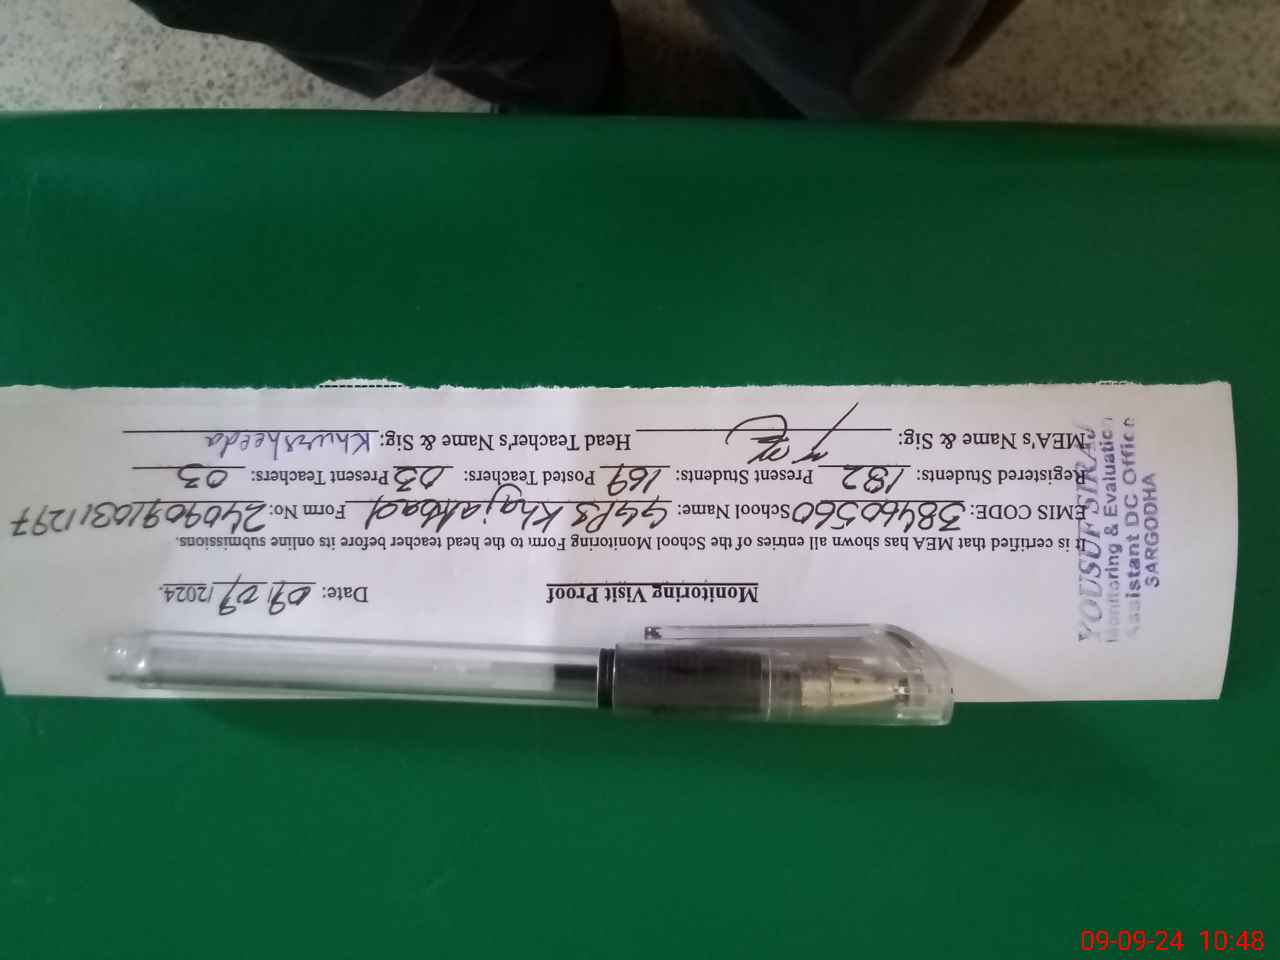 Monitoring Visit Proof
Date: 09/09/2024.
It is certified that MEA has shown all entries of the School Monitoring Form to the head teacher before its online submissions.
EMIS CODE: 38460560 School Name: GGPS Khajiabad Form No: 24090910311297
Registered Students: 182 Present Students: 169 Posted Teachers: 03 Present Teachers: 03
MEA's Name & Sig: Head Teacher's Name & Sig: Khursheeda
YOUSUF SIRAJ
Monitoring & Evaluation
Assistant DC Office
SARGODHA
09-09-24 10:48